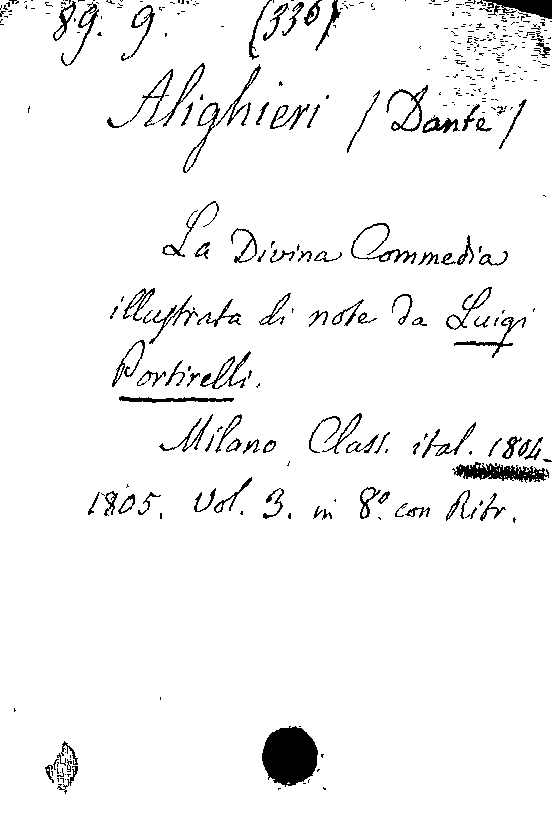 89. 9. (336)
Alighieri /Dante/
La Divina Commedia
illustrata di note da Luigi
Portirelli.
Milano, Class. ital. 1804-
1805. Vol. 3. in 8.º con Ritr.